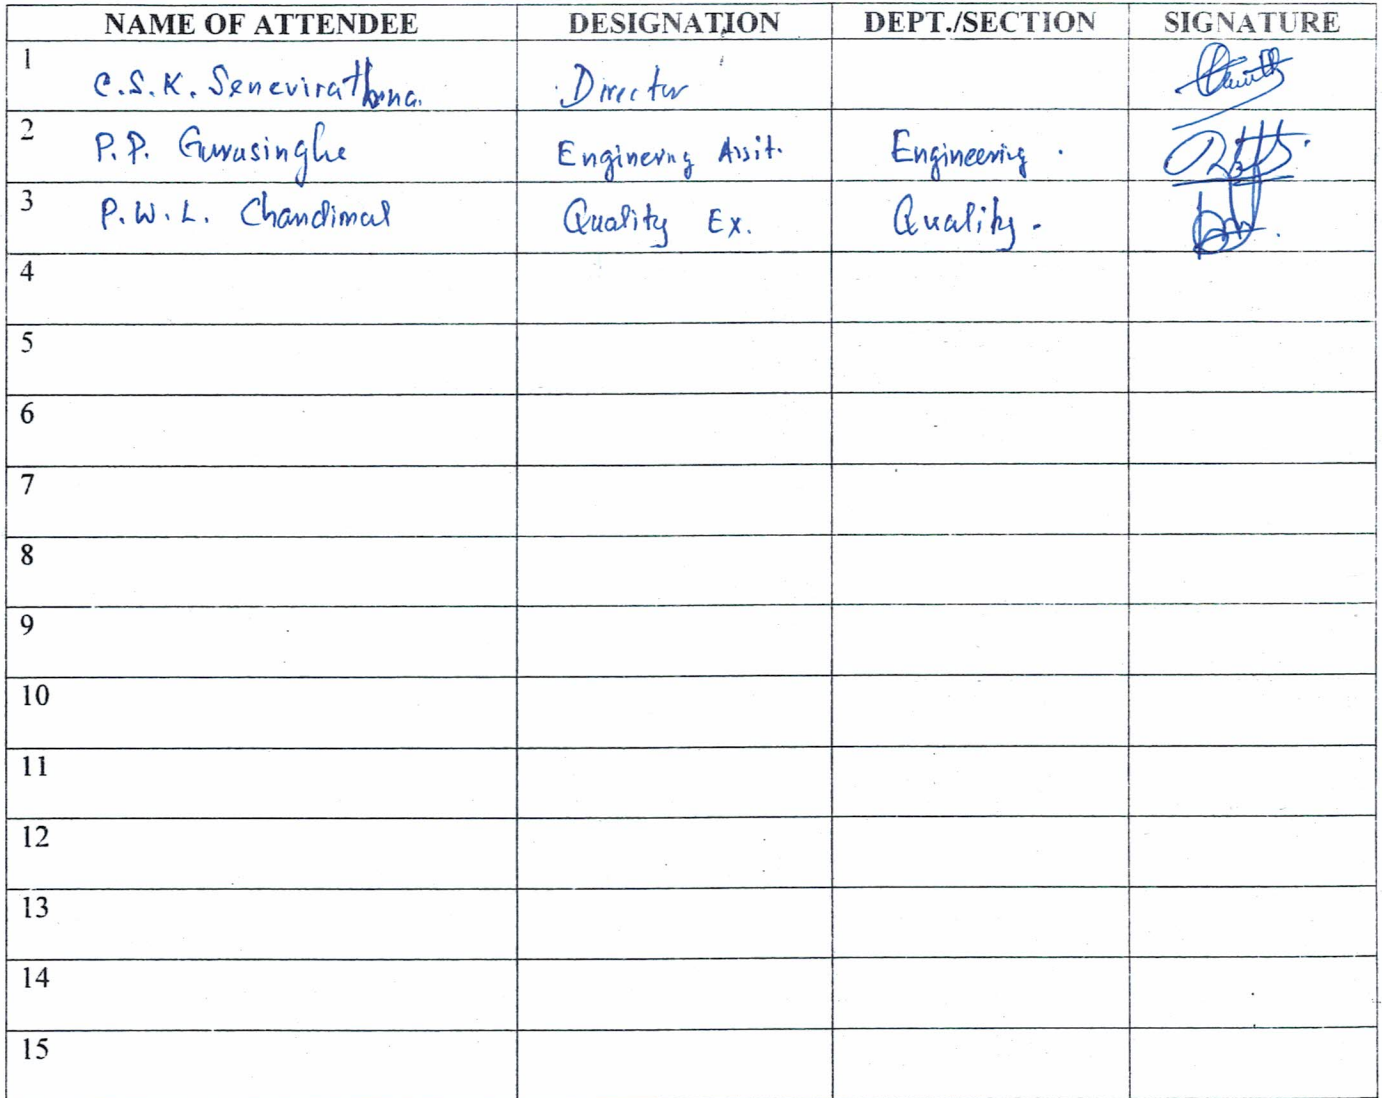 NAME OF ATTENDEE DESIGNATION DEPT./SECTION SIGNATURE
1 C.S.K. Senevirathna. Director
2 P.P. Guruasinghe Enginerng Assit. Engineering .
3 P.W.L. Chandimal Quality Ex. Quality .
4
5
6
7
8
9
10
11
12
13
14
15